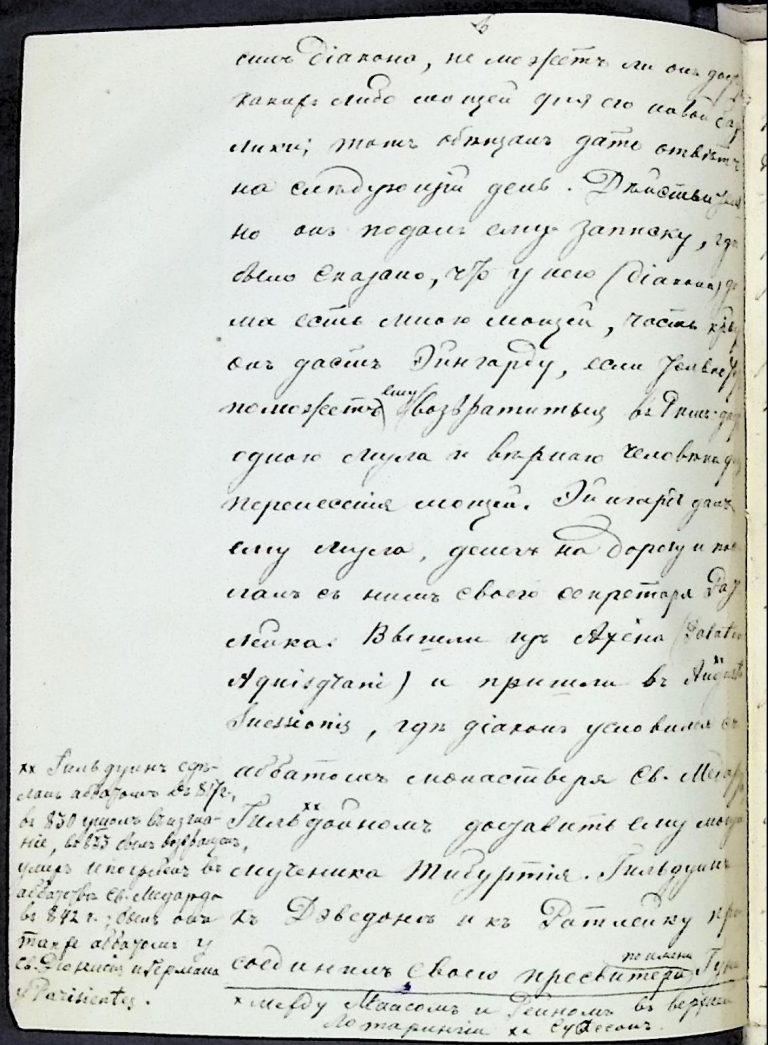 силъ діакона, не можетъ ли онъ
какихъ либо мощей для его новой
лики; тотъ обѣщалъ дать отвѣтъ
на слѣдующій день. Дѣйствитель
но онъ подалъ ему записку, гдѣ
было сказано, что у него (діакона) до
ма есть много мощей, часть
онъ дастъ Эйнгарду, если
поможетъ ему возвратиться въ Римъ
одного мула и вѣрнаго человѣка
перенесенія мощей. Эйнгардъ далъ
ему мула, денегъ на дорогу и пос
лалъ съ нимъ своего секретаря Рат
лейка. Вышли изъ Ахена (Palatio
Aquisgrani) и пришли въ August
Suessionis, гдѣ діаконъ условился съ
аббатомъ монастыря Св. Медар
Гильдойномъ xx доставить ему мощи
мученика Тибуртія. Гильдуинъ
къ и къ Ратлейку при
соединилъ своего пресвитера, по имени Гуна
xx Гильдуинъ сдѣ-
ланъ аббатомъ въ
въ 830 ушолъ въ изгна-
ніе, былъ возвращенъ,
умеръ и погребенъ въ
аббатствѣ Св. Медарда
въ 842 г.; былъ онъ
также аббатомъ у
Св. Діонисія и Германа
у Parisientes.
x между Маасомъ и Рейномъ въ верхней
Лотарингіи xx Суассонъ.